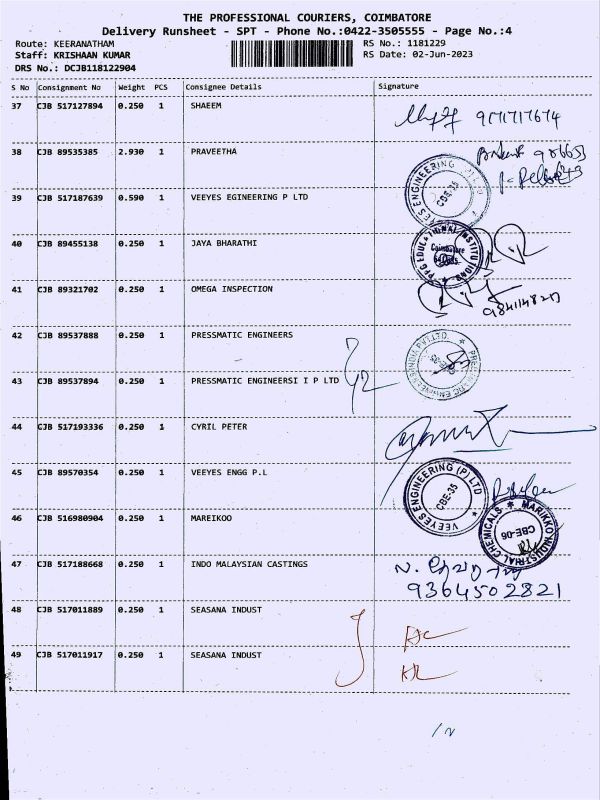 THE PROFESSIONAL COURIERS, COIMBATORE
Delivery Runsheet - SPT - Phone No.:0422-3505555 - Page No.:4
Route: KEERANATHAM RS No.: 1181229
Staff: KRISHAAN KUMAR RS Date: 02-Jun-2023
DRS No.: DCJB118122904
S No Consignment No Weight PCS Consignee Details Signature
37 CJB 517127894 0.250 1 SHAEEM
38 CJB 89535385 2.930 1 PRAVEETHA
39 CJB 517187639 0.590 1 VEEYES EGINEERING P LTD CBE-35
40 CJB 89455138 0.250 1 JAYA BHARATHI PPG EDUCATIONAL INSTITUTIONS Coimbatore
41 CJB 89321702 0.250 1 OMEGA INSPECTION
42 CJB 89537888 0.250 1 PRESSMATIC ENGINEERS
43 CJB 89537894 0.250 1 PRESSMATIC ENGINEERSI I P LTD
44 CJB 517193336 0.250 1 CYRIL PETER
45 CJB 89570354 0.250 1 VEEYES ENGG P.L VEEYES ENGINEERING (P) LTD CBE-35
46 CJB 516980904 0.250 1 MAREIKOO MARIKKO INDUSTRIAL CHEMICALS CBE-06
47 CJB 517188668 0.250 1 INDO MALAYSIAN CASTINGS
9364502821
48 CJB 517011889 0.250 1 SEASANA INDUST
49 CJB 517011917 0.250 1 SEASANA INDUST